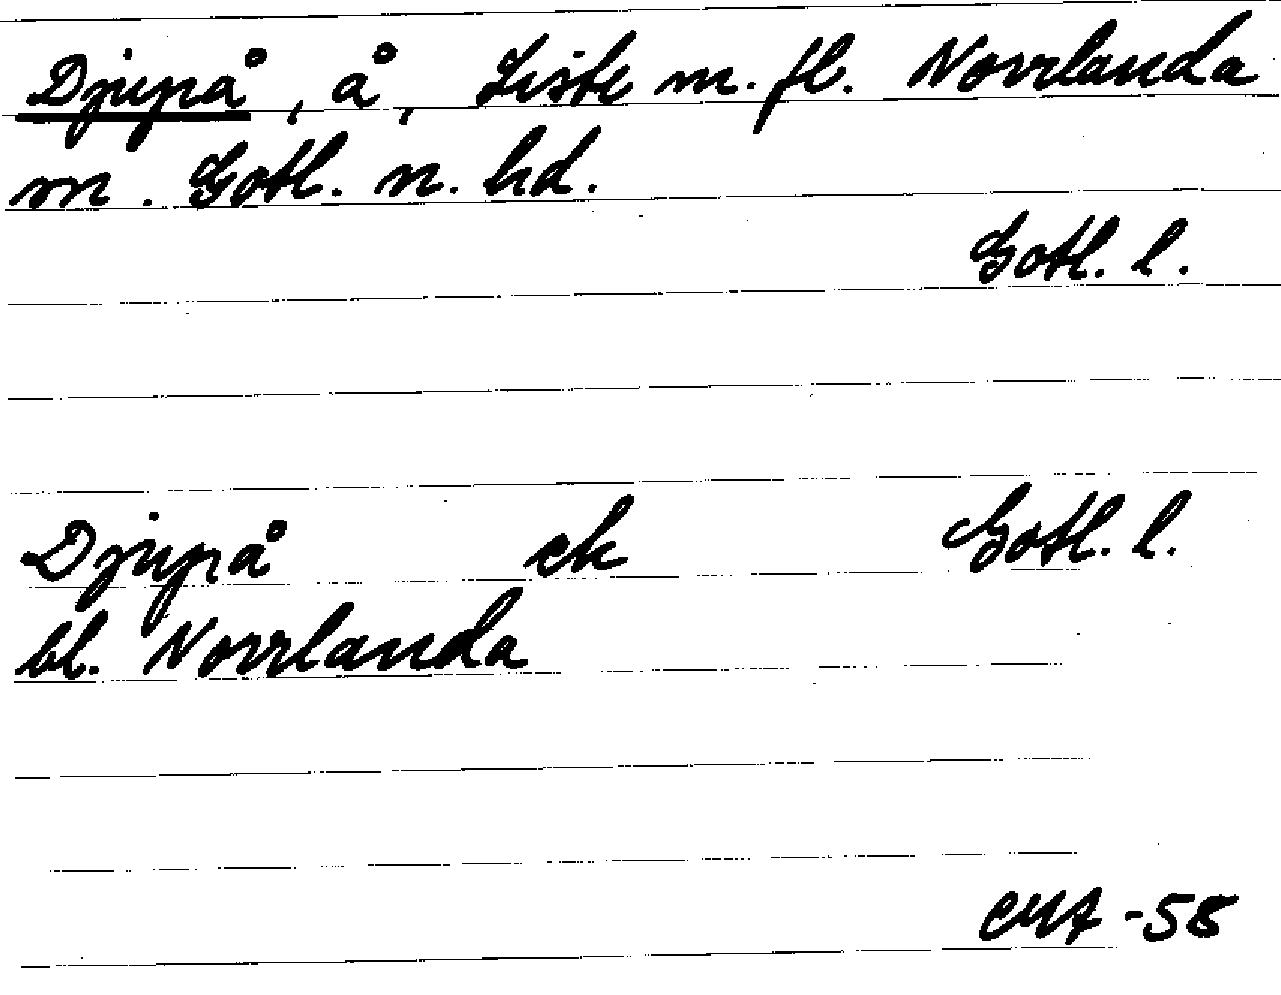 Djupå, å, Liste m. fl. Norrlanda
m. Gotl. n. hd.
Gotl. l.
Djupå ek Gotl. l.
bl. Norrlanda
-58